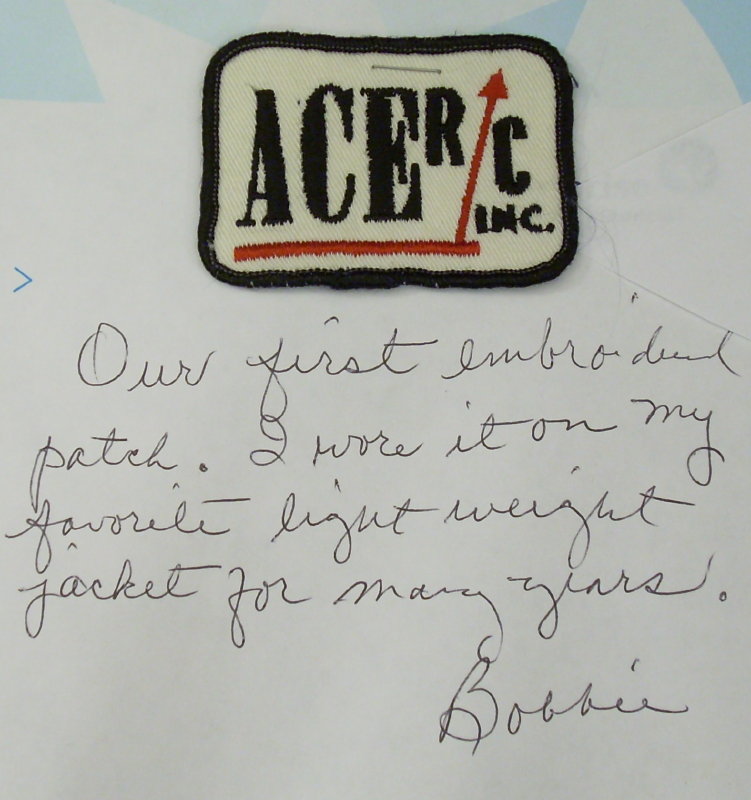 ACE R/C
INC.
Our first embroidered
patch. I wore it on my
favorite light weight
jacket for many years.
Bobbie